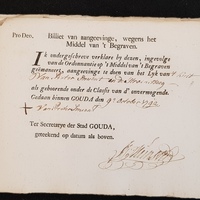 Pro Deo.
Biljet van aangeevinge, wegens het
Middel van 't Begraven.
Ik ondergeschreve verklare by dezen, ingevolge
van de Ordonnantie op 't Middel van 't Begraven
geëmaneert, aangeevinge te doen van het Lyk van
als gehoorende onder de Classis van d' onvermogende.
Gedaan binnen GOUDA den 9 October 1792
Ter Secretarye der Stad GOUDA,
geteekend op datum als boven.